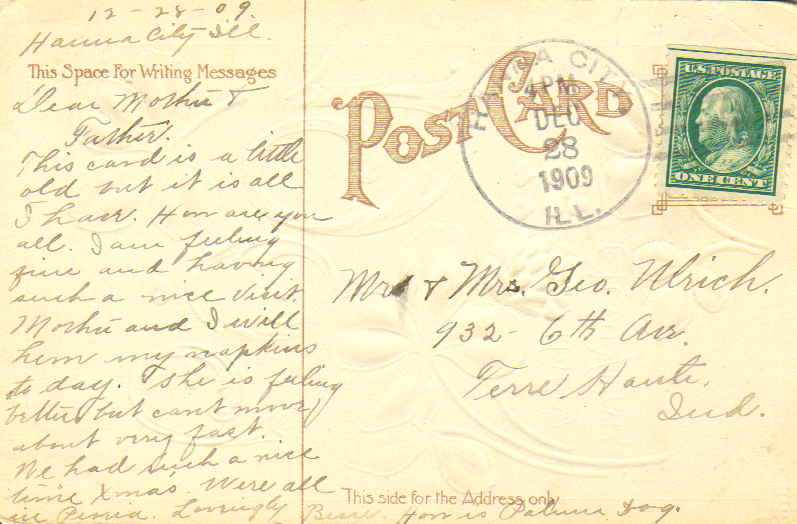 12-28-09.
Hanna City Ill.
This Space For Writing Messages
Dear Mother &
Father.
This card is a little
old but it is all
I have. How are you
all. I am feeling
fine and having
such a nice visit.
Mother and I will
hem my napkins
to day. She is feeling
better but cant move
about very fast.
We had such a nice
time Xmas. Were all
in Peoria. Lovingly Bessie. How is Paluma Dog.
POST CARD
HANNA CITY
4 PM
DEC
28
1909
ILL.
U.S. POSTAGE
ONE CENT
Mr. & Mrs. Geo. Ulrich.
932 - 6th Ave.
Terre Haute,
Ind.
This side for the Address only